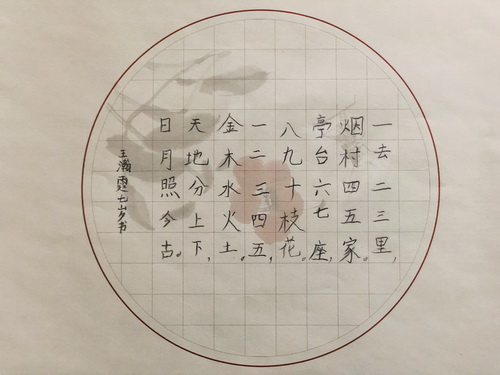 一去二三里，
烟村四五家。
亭台六七座，
八九十枝花。
一二三四五，
金木水火土。
天地分上下，
日月照今古。
王灏霆七岁书